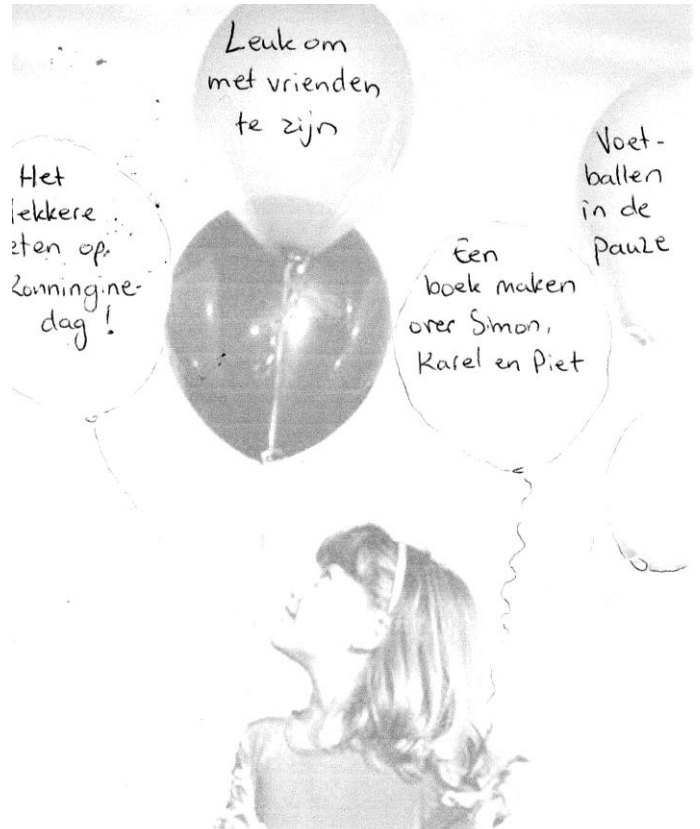 Leuk om
met vrienden
te zijn
Het
lekkere
eten op
Konningine-
dag !
Een
boek maken
over Simon,
Karel en Piet
Voet-
ballen
in de
pauze